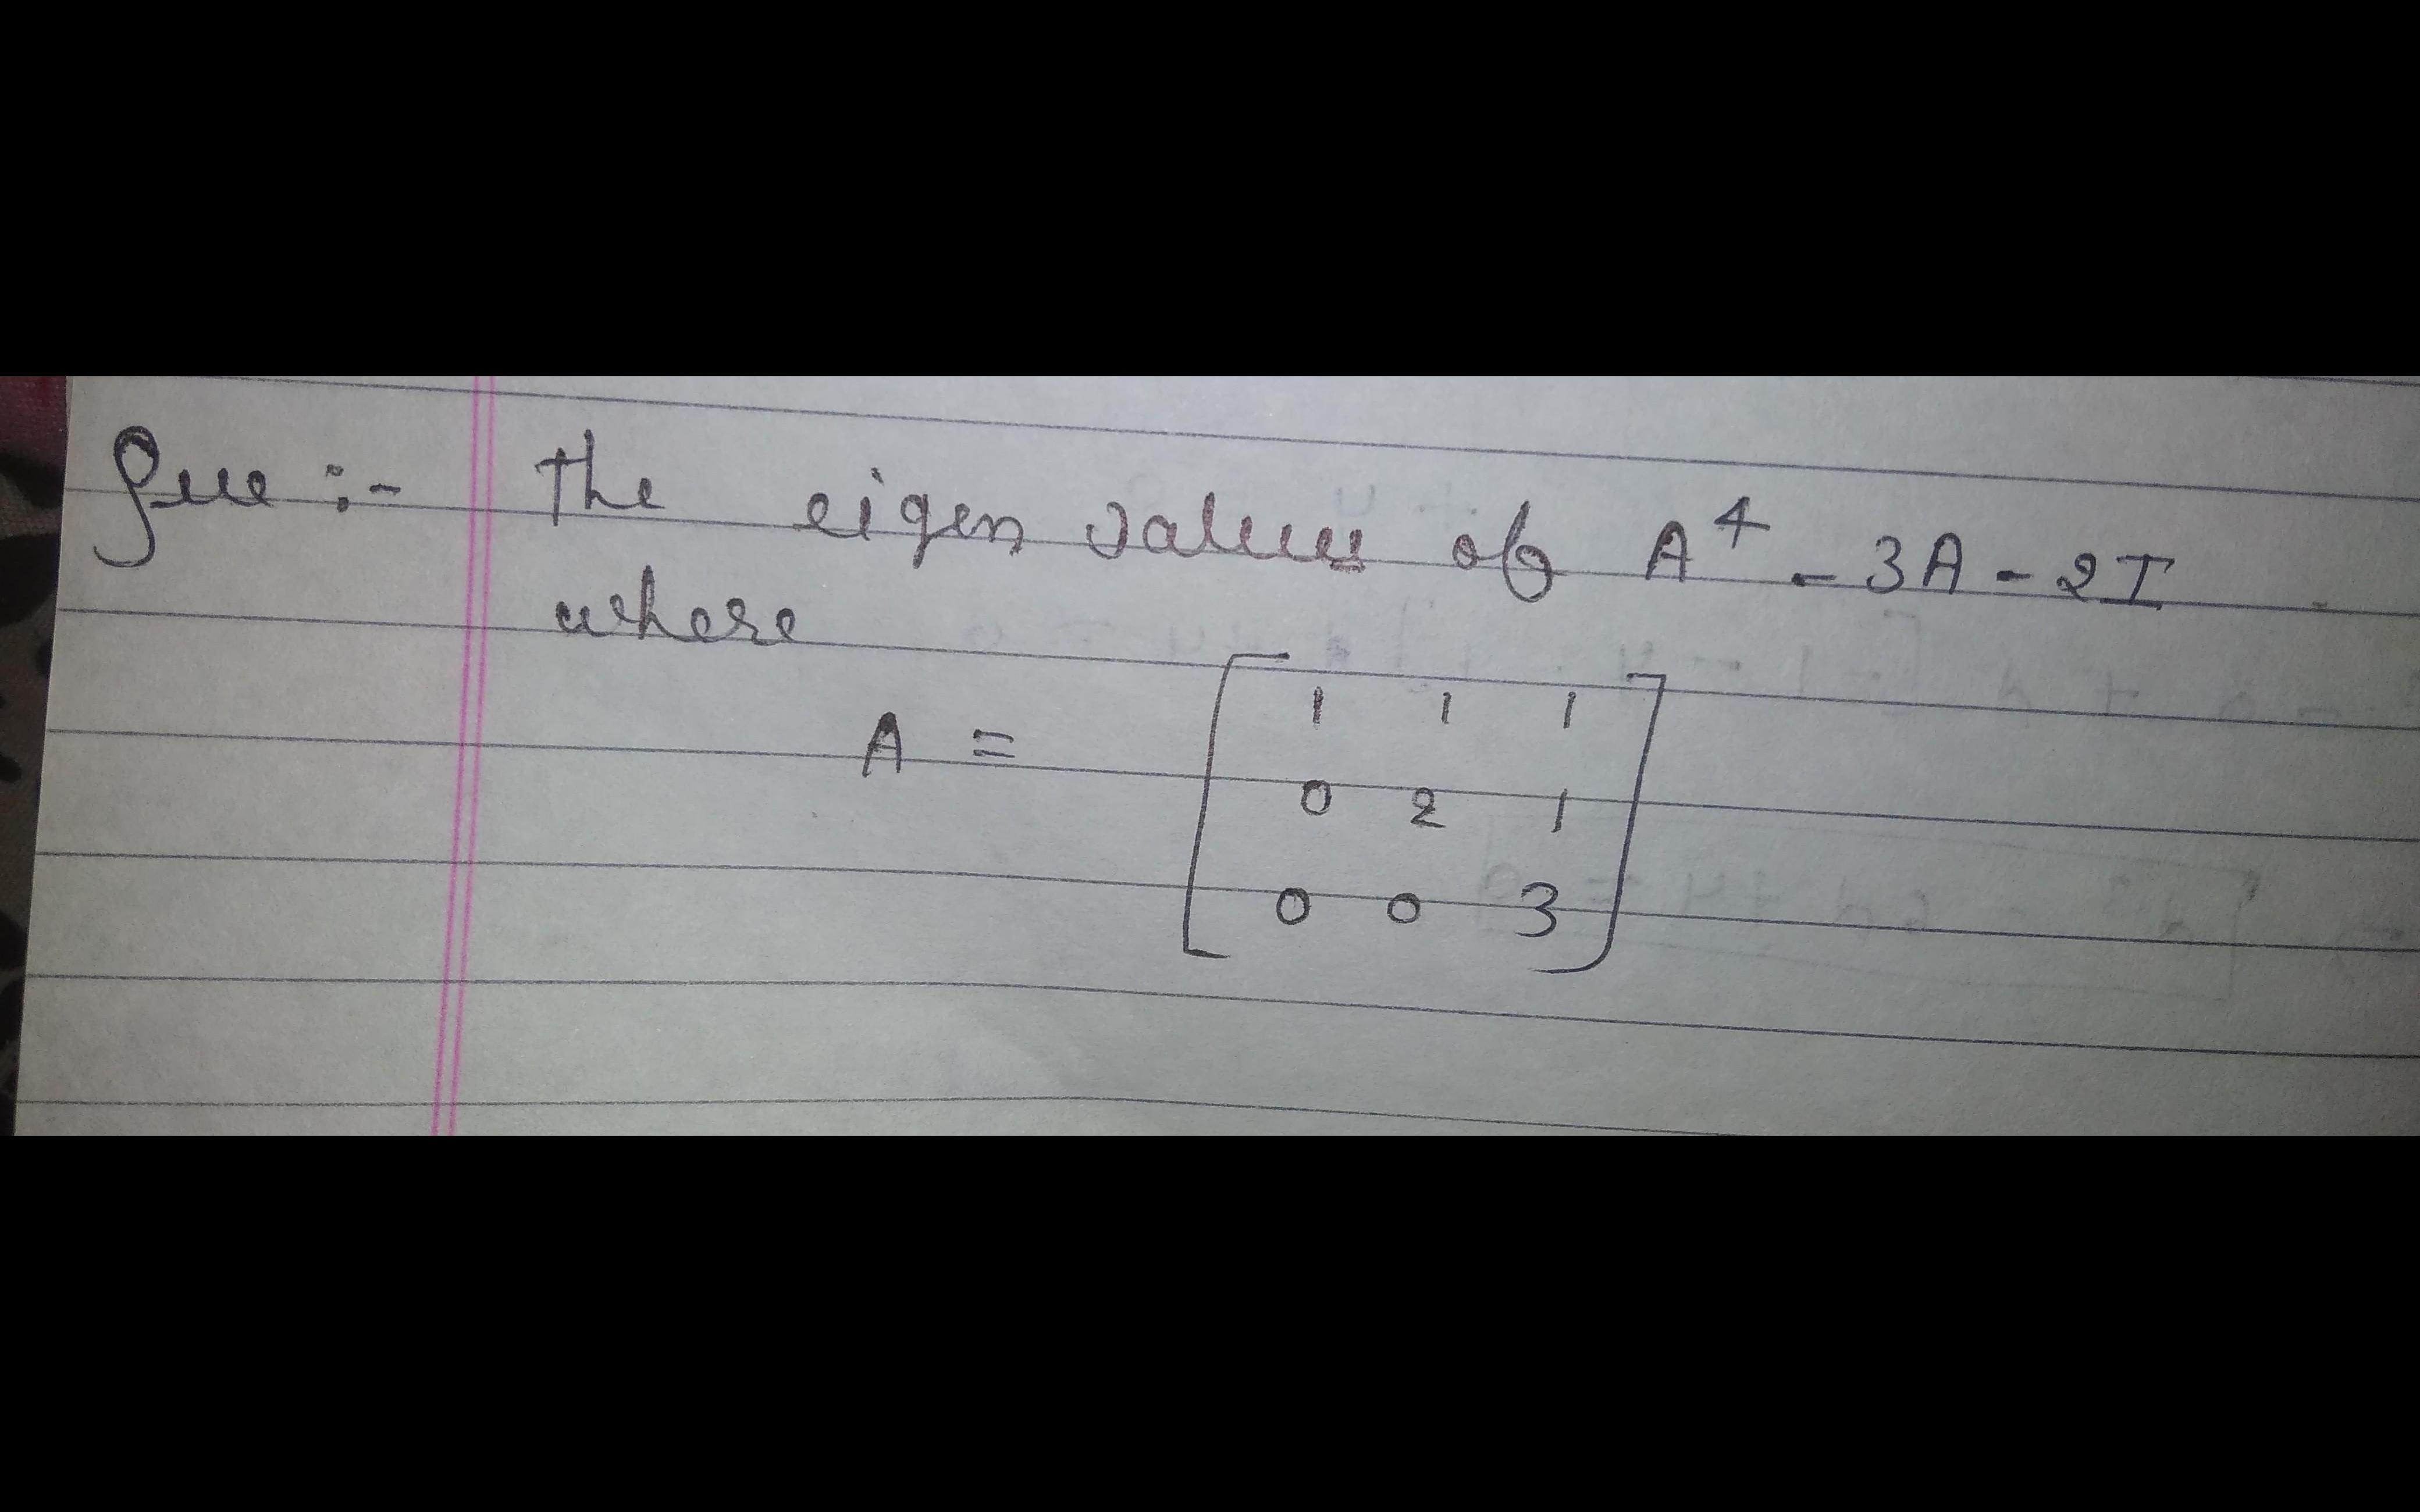 Que :- The eigen values of A⁴ - 3A - 2I
where
A = [ 1 1 1
0 2 1
0 0 3 ]